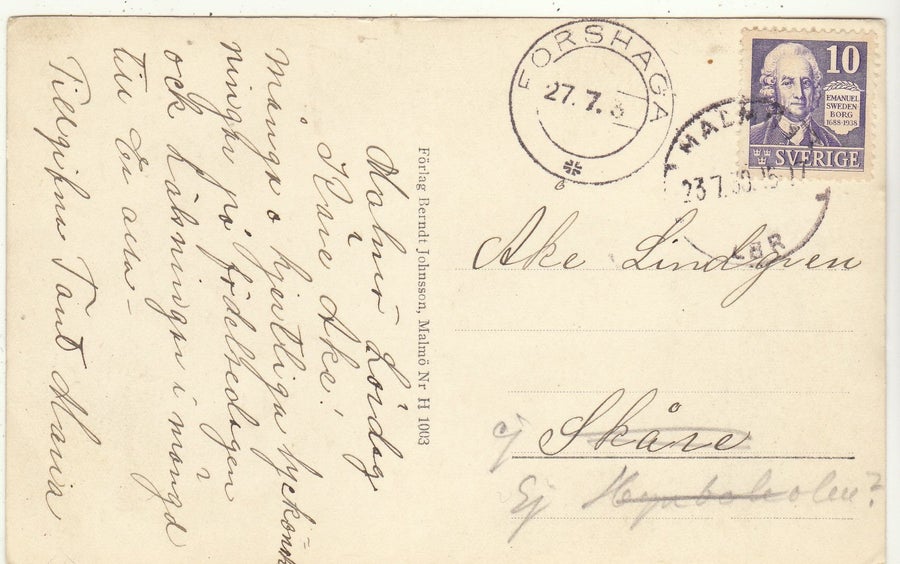 Malmö Lördag
Käre Åke!
Många o hjertliga lyckönsk=
ningar på födelsedagen
och hälsningar i mängd
till Er alla –
Tillgifna Tant Maria
Förlag Berndt Johnsson, Malmö Nr H 1003
FORSHAGA
27.7.3
10
EMANUEL
SWEDEN-
BORG
1688-1938
SVERIGE
MALMÖ
23.7.
LBR
Åke Lindgren
ej Skåne
Ej